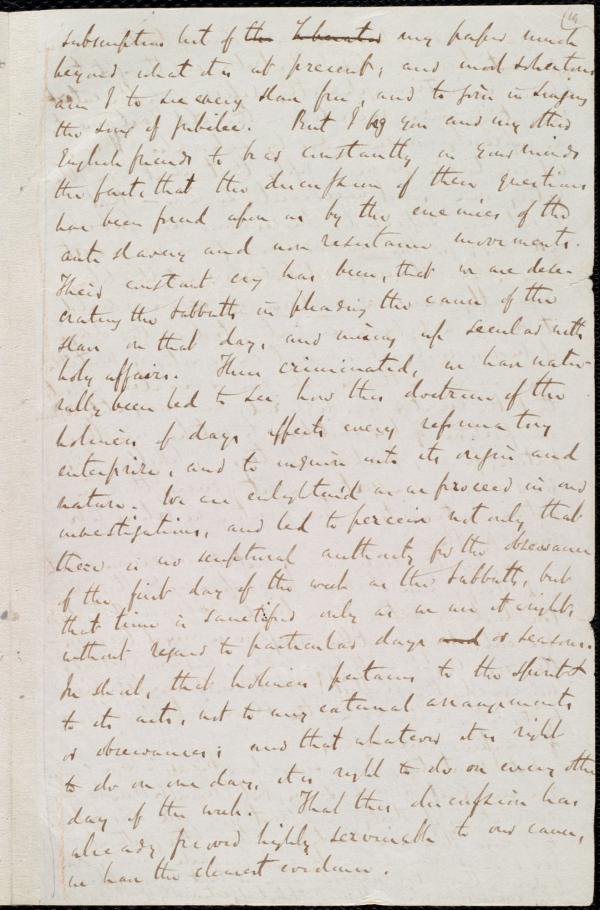 19
subscription list of the Liberator my paper much
beyond what it is at present; and most solicitous
am I to see every slave free, and to join in singing
the song of jubilee. But I beg you and my other
English friends to bear constantly in your minds
the fact, that the discussion of these questions
has been forced upon us by the enemies of the
anti slavery and non resistance movements.
Their constant cry has been, that we are dese-
crating the Sabbath in pleading the cause of the
slave on that day, and mixing up secular with
holy affairs. Thus criminated, we have natu-
rally been led to see, how this doctrine of the
holiness of days affects every reformatory
enterprise, and to inquire into its origin and
nature. We are enlightened as we proceed in our
investigations, and led to perceive not only that
there is no scriptural authority for the observance
of the first day of the week as the Sabbath, but
that time is sanctified only as we use it aright,
without regard to particular days and or seasons.
In short, that holiness pertains to the spirit &
to its acts, not to any external arrangements
or observances; and that whatever it is right
to do on one day, it is right to do on every other
day of the week. That this discussion has
already proved highly serviceable to our cause,
we have the clearest evidence.